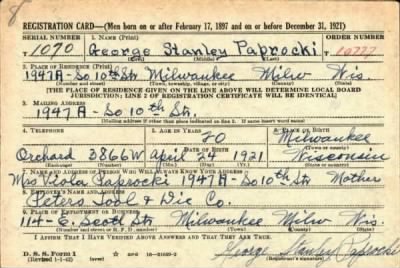 REGISTRATION CARD—(Men born on or after February 17, 1897 and on or before December 31, 1921)
SERIAL NUMBER 1. NAME (Print) ORDER NUMBER
T 1090 George Stanley Paprocki 10777
(First) (Middle) (Last)
2. PLACE OF RESIDENCE (Print)
1947A-So 10th Str. Milwaukee Milw Wis.
(Number and street) (Town, township, village, or city) (County) (State)
[THE PLACE OF RESIDENCE GIVEN ON THE LINE ABOVE WILL DETERMINE LOCAL BOARD
JURISDICTION; LINE 2 OF REGISTRATION CERTIFICATE WILL BE IDENTICAL]
3. MAILING ADDRESS
1947A-So 10th Str.
[Mailing address if other than place indicated on line 2. If same insert word same]
4. TELEPHONE 5. AGE IN YEARS 6. PLACE OF BIRTH
20 Milwaukee
DATE OF BIRTH (Town or county)
Orchard 3866W April 24 1921 Wisconsin
(Exchange) (Number) (Mo.) (Day) (Yr.) (State or country)
7. NAME AND ADDRESS OF PERSON WHO WILL ALWAYS KNOW YOUR ADDRESS
Mrs Viola Paprocki 1947A-So 10th Str. Mother
8. EMPLOYER'S NAME AND ADDRESS
Peters Tool & Die Co.
9. PLACE OF EMPLOYMENT OR BUSINESS
114-E. Scott Str Milwaukee Milw Wis.
(Number and street or R. F. D. number) (Town) (County) (State)
I AFFIRM THAT I HAVE VERIFIED ABOVE ANSWERS AND THAT THEY ARE TRUE.
D. S. S. Form 1
(Revised 1-1-42) (over) George Stanley Paprocki